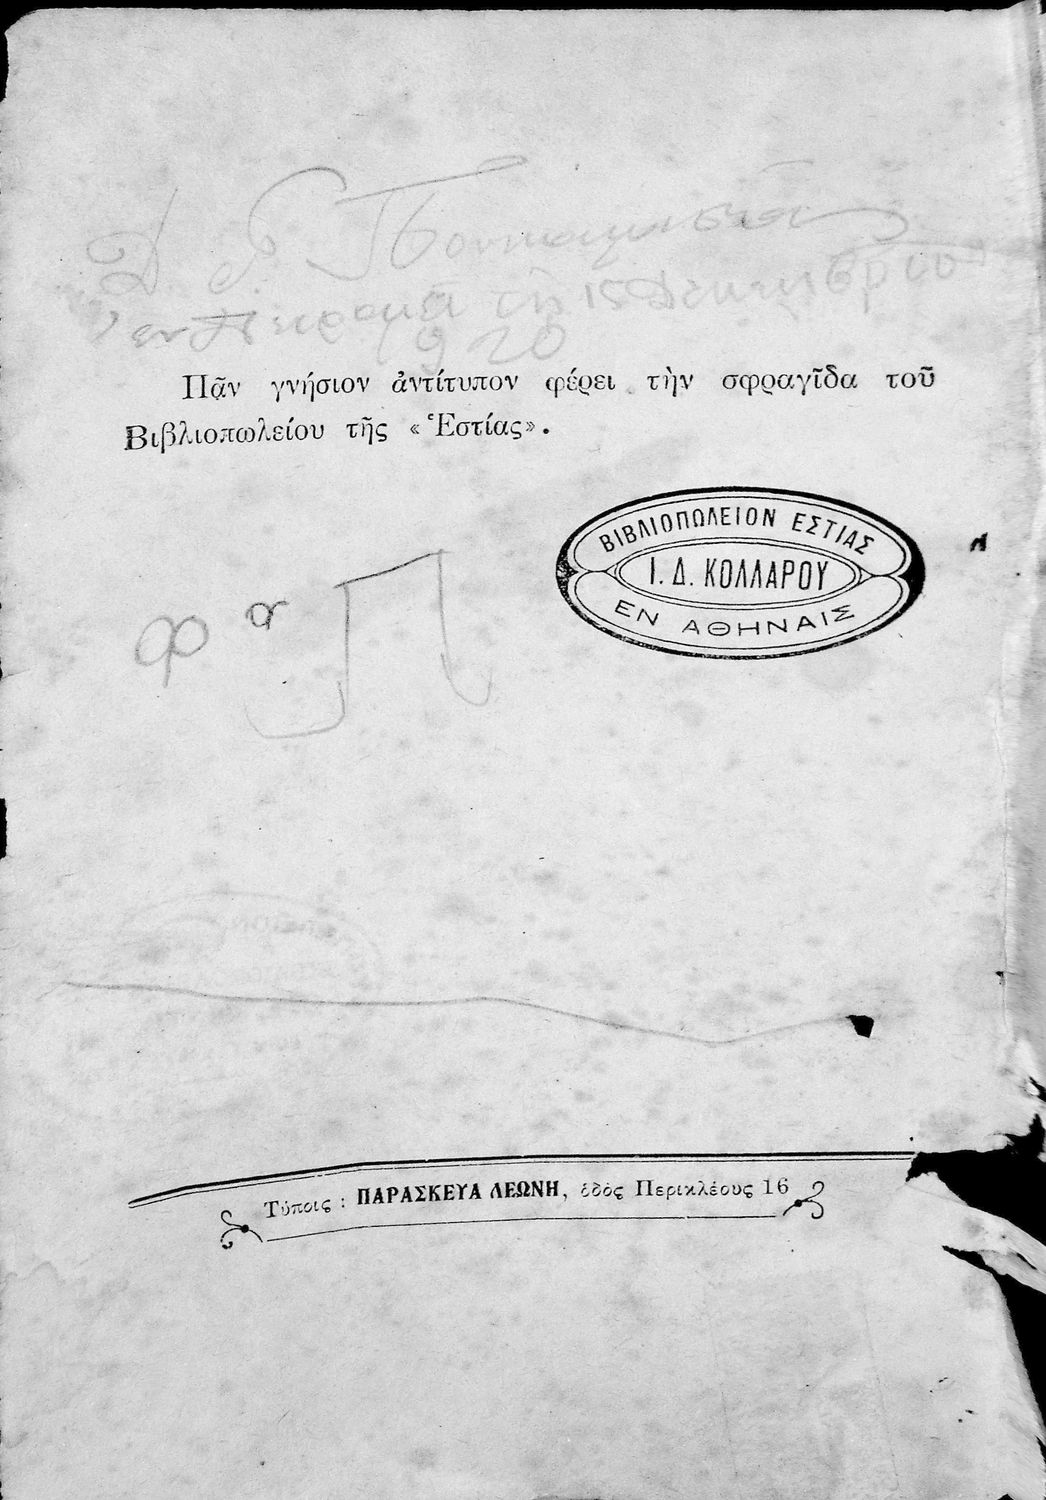 τῇ 15 Δεκεμβρίου
1920
Πᾶν γνήσιον ἀντίτυπον φέρει τὴν σφραγῖδα τοῦ
Βιβλιοπωλείου τῆς « Ἑστίας».
ΒΙΒΛΙΟΠΩΛΕΙΟΝ ΕΣΤΙΑΣ
Ι. Δ. ΚΟΛΛΑΡΟΥ
ΕΝ ΑΘΗΝΑΙΣ
Τύποις : ΠΑΡΑΣΚΕΥΑ ΛΕΩΝΗ, ὁδὸς Περικλέους 16